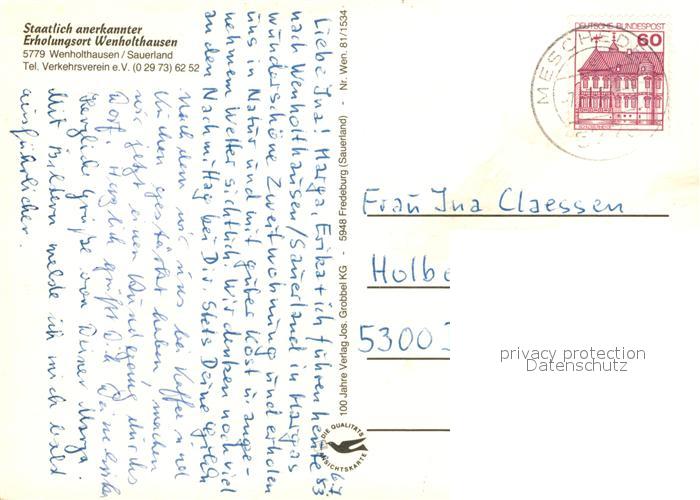 Staatlich anerkannter
Erholungsort Wenholthausen
5779 Wenholthausen / Sauerland
Tel. Verkehrsverein e.V. (0 29 73) 62 52
6.7
83
Liebe Ina! Marga, Erika + ich führen heute
nach Wenholthausen/Sauerland in Margas
wunderschöne Zweitwohnung und erholen
uns in Natur und mit guter Kost u. ange-
nehmem Wetter sichtlich. Wir denken noch viel
an den Nachmittag bei Dir. Stets Deine
Nachdem wir uns bei Kaffee und
Kuchen gestärkt haben, machen
wir jetzt einen Rundgang durchs
Dorf. Herzlich grüßt Dich Deine
Herzliche Grüße von Deiner Marga.
Mit Bildern melde ich mich bald
ausführlicher.
100 Jahre Verlag Jos. Grobbel KG - 5948 Fredeburg (Sauerland) - Nr. Wen. 81/1534
DIE QUALITÄTS
ANSICHTSKARTE
DEUTSCHE BUNDESPOST
60
MESCHEDE
Frau Ina Claessen
Holbe
5300
privacy protection
Datenschutz